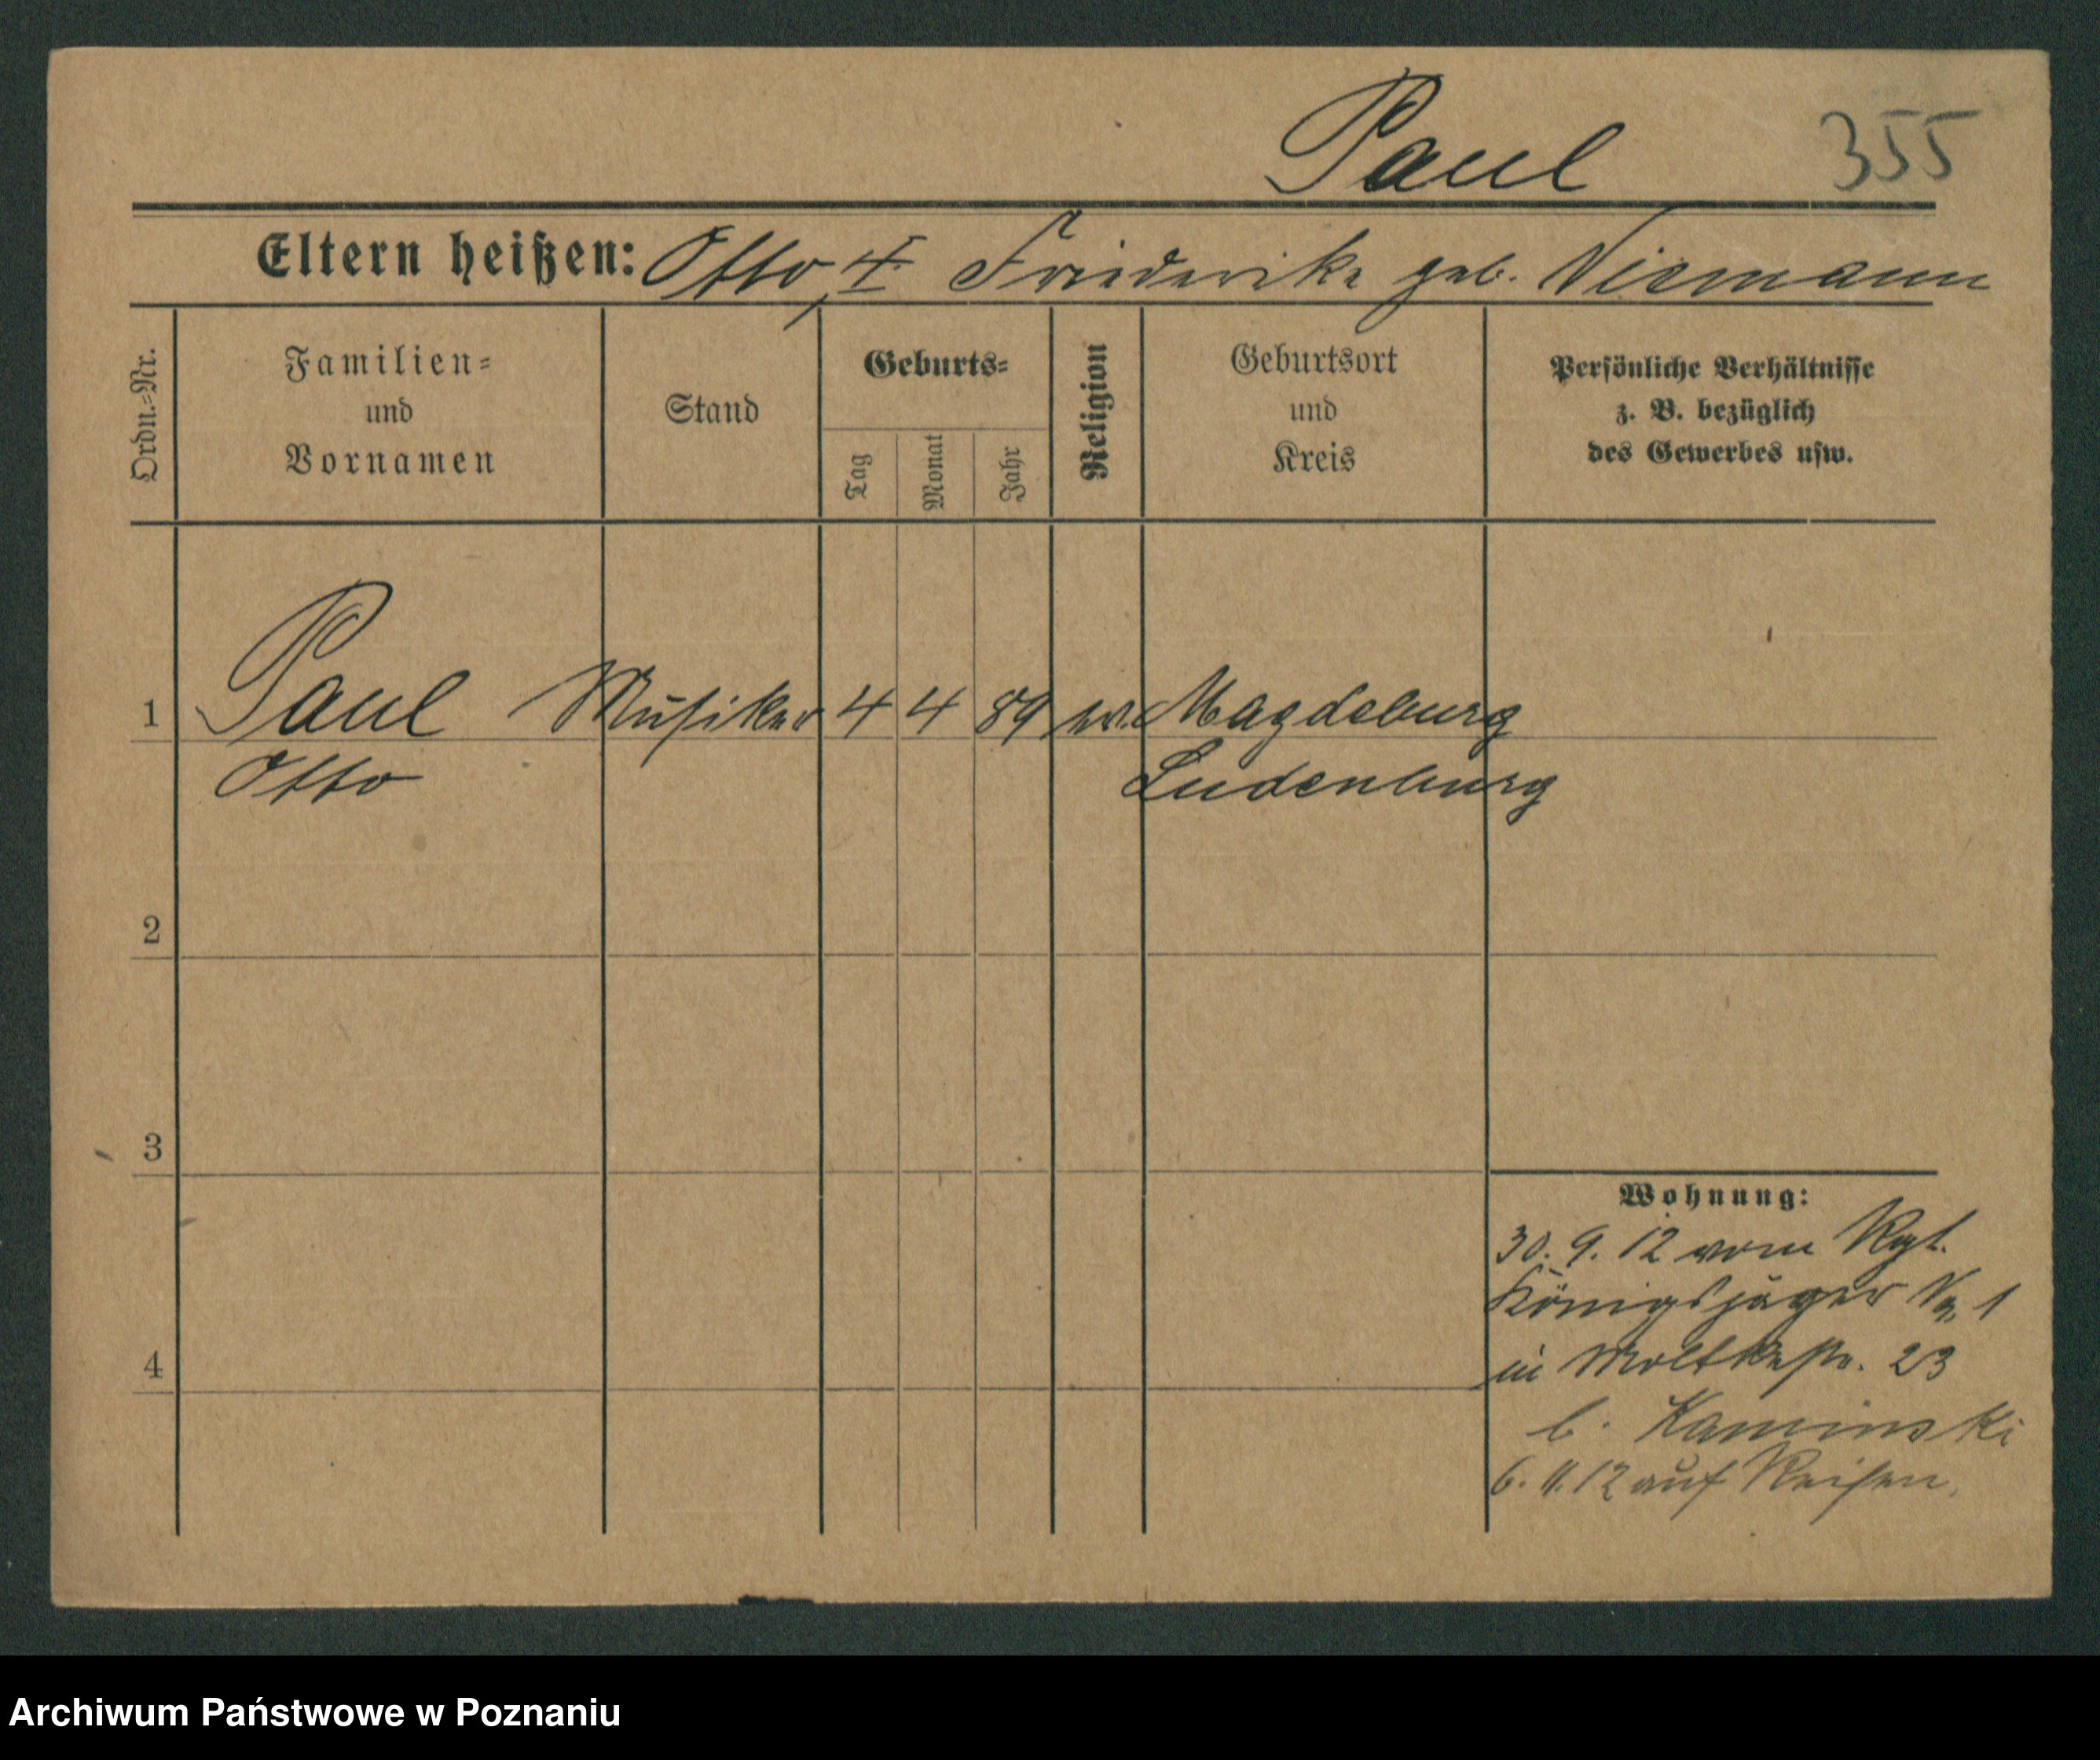 Paul 355
Eltern heißen: Otto, Friederike geb. Niemann
Ordn.=Nr.
Familien=
und
Vornamen
Stand
Geburts=
Tag
Monat
Jahr
Religion
Geburtsort
und
Kreis
Persönliche Verhältnisse
z. B. bezüglich
des Gewerbes usw.
1 Paul Musiker 4 4 89 ev. Magdeburg
Otto Sudenburg
2
3
Wohnung:
30. 9. 12 vom Rgt.
Königsjäger No 1
4
in Moltkestr. 23
b. Kaminski
6. 11. 12 auf Reisen.
Archiwum Państwowe w Poznaniu